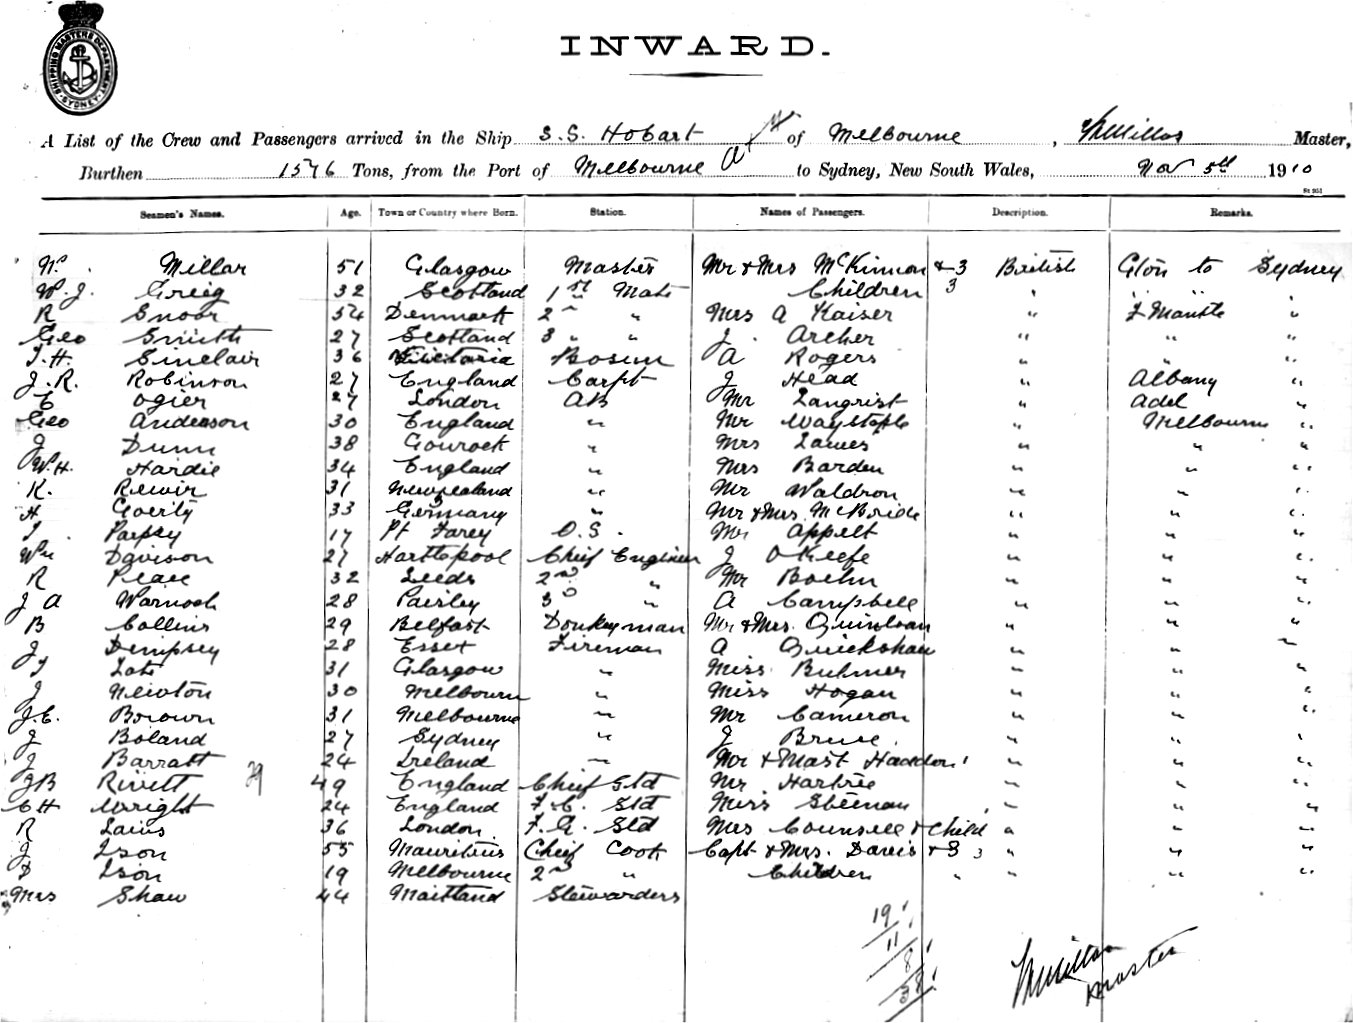 SHIPPING MASTERS DEPARTMENT
SYDNEY
INWARD.
A List of the Crew and Passengers arrived in the Ship S.S. Hobart of Melbourne, Millar Master,
Burthen 1576 Tons, from the Port of Melbourne to Sydney, New South Wales, Nov 5th 1910
St 951
Seamen's Names. Age. Town or Country where Born. Station. Names of Passengers. Description. Remarks.
W. Millar 51 Glasgow Master Mr & Mrs McKinnon & 3 British Glon to Sydney
W.J. Greig 32 Scotland 1st Mate Children 3 " " "
R Enoor 54 Denmark 2nd " Mrs A Kaiser " F Mantle "
Geo Smith 27 Scotland 3 " " J Archer " " "
J.H. Sinclair 36 Victoria Bosun A Rogers " " "
J.R. Robinson 27 England Carpt J Head " Albany "
E Ogier 27 London AB Mr Langrist " Adel "
Geo Anderson 30 England " Mr Waystaple " Melbourne "
J Dunn 38 Gourock " Mrs James " " "
W.H. Hardie 34 England " Mrs Barden " " "
K. Rewir 31 New Zealand " Mr Waldron " " "
H Goerty 33 Germany " Mr & Mrs McBride " " "
J. Parpsy 17 Pt Farey O.S. Mr Appelt " " "
Wm Davison 27 Hartlepool Chief Engineer J O'Keefe " " "
R Peace 32 Leeds 2nd " Mr Boehm " " "
J A Warnock 28 Paisley 3 " A Campbell " " "
B Collins 29 Belfast Donkeyman Mr & Mrs. Quinlan " " "
J Dempsey 28 Essex Fireman A Quickshaw " " "
J Tate 31 Glasgow " Miss Buhmer " " "
J Newton 30 Melbourne " Miss Hogan " " "
J.C. Brown 31 Melbourne " Mr Cameron " " "
J Boland 27 Sydney " J Bruce " " "
J Barratt 24 Ireland " Mr & Mast Haddon " " "
J B Rivett 49 England Chief Std Mr Hartree " " "
C H Wright 24 England F.C. Std Miss Sheenan " " "
R Lains 36 London F.G. Std Mrs Counsell & Child " " "
J Ison 55 Mauritius Chief Cook Capt & Mrs. Davis & 3 " " "
Ison 19 Melbourne 2nd " Children " " " "
Mrs Shaw 44 Maitland Stewardess
19
11
8
38
Millar
Master